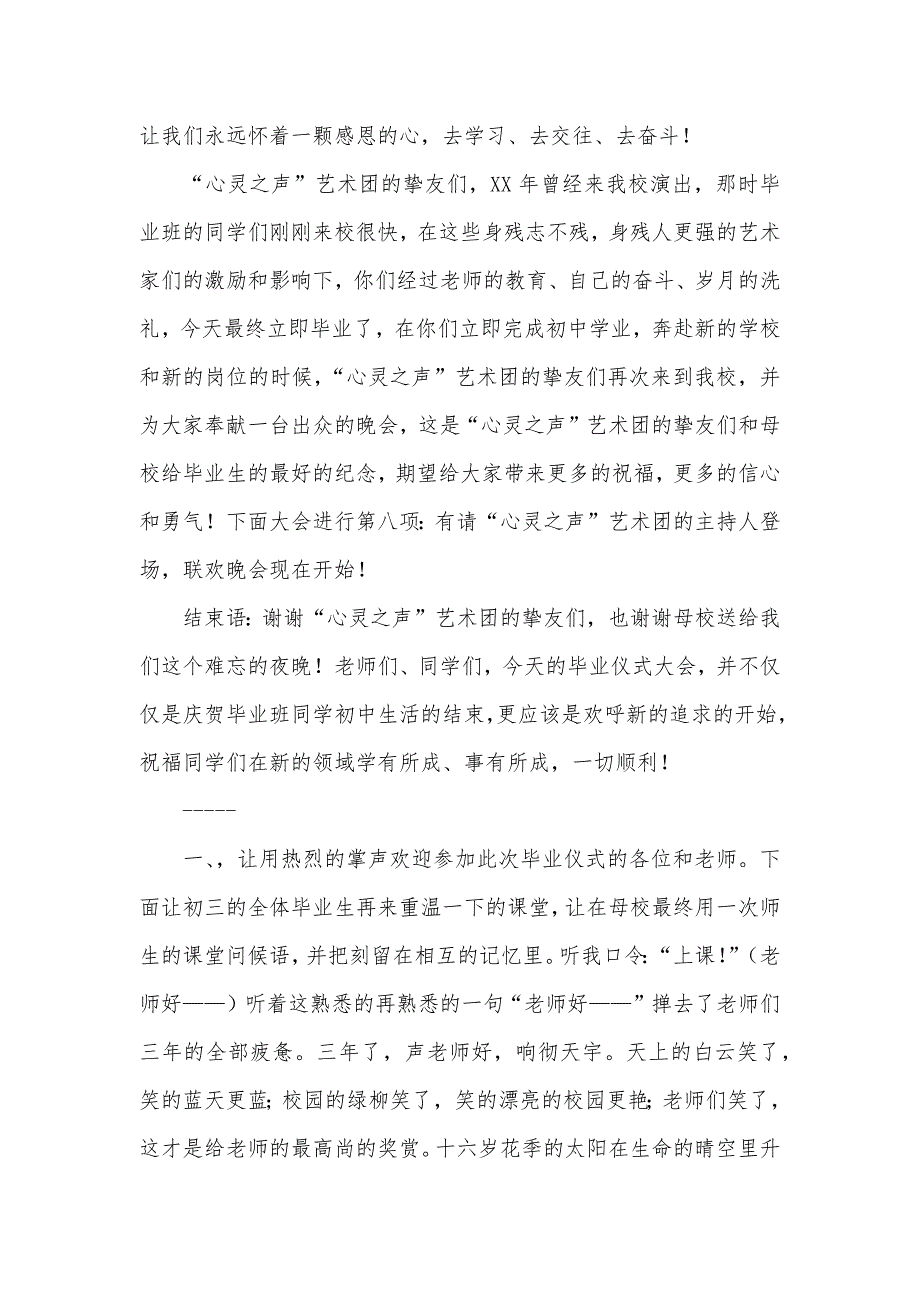 让我们永远怀着一颗感恩的心，去学习、去交往、去奋斗！
“心灵之声”艺术团的挚友们，XX 年曾经来我校演出，那时毕
业班的同学们刚刚来校很快，在这些身残志不残，身残人更强的艺术
家们的激励和影响下，你们经过老师的教育、自己的奋斗、岁月的洗
礼，今天最终立即毕业了，在你们立即完成初中学业，奔赴新的学校
和新的岗位的时候，“心灵之声”艺术团的挚友们再次来到我校，并
为大家奉献一台出众的晚会，这是“心灵之声”艺术团的挚友们和母
校给毕业生的最好的纪念，期望给大家带来更多的祝福，更多的信心
和勇气！下面大会进行第八项：有请“心灵之声”艺术团的主持人登
场，联欢晚会现在开始！
结束语：谢谢“心灵之声”艺术团的挚友们，也谢谢母校送给我
们这个难忘的夜晚！老师们、同学们，今天的毕业仪式大会，并不仅
仅是庆贺毕业班同学初中生活的结束，更应该是欢呼新的追求的开始，
祝福同学们在新的领域学有所成、事有所成，一切顺利！
-----
一、，让用热烈的掌声欢迎参加此次毕业仪式的各位和老师。下
面让初三的全体毕业生再来重温一下的课堂，让在母校最终用一次师
生的课堂问候语，并把刻留在相互的记忆里。听我口令：“上课！”（老
师好——）听着这熟悉的再熟悉的一句“老师好——”掸去了老师们
三年的全部疲惫。三年了，声老师好，响彻天宇。天上的白云笑了，
笑的蓝天更蓝；校园的绿柳笑了，笑的漂亮的校园更艳；老师们笑了，
这才是给老师的最高尚的奖赏。十六岁花季的太阳在生命的晴空里升